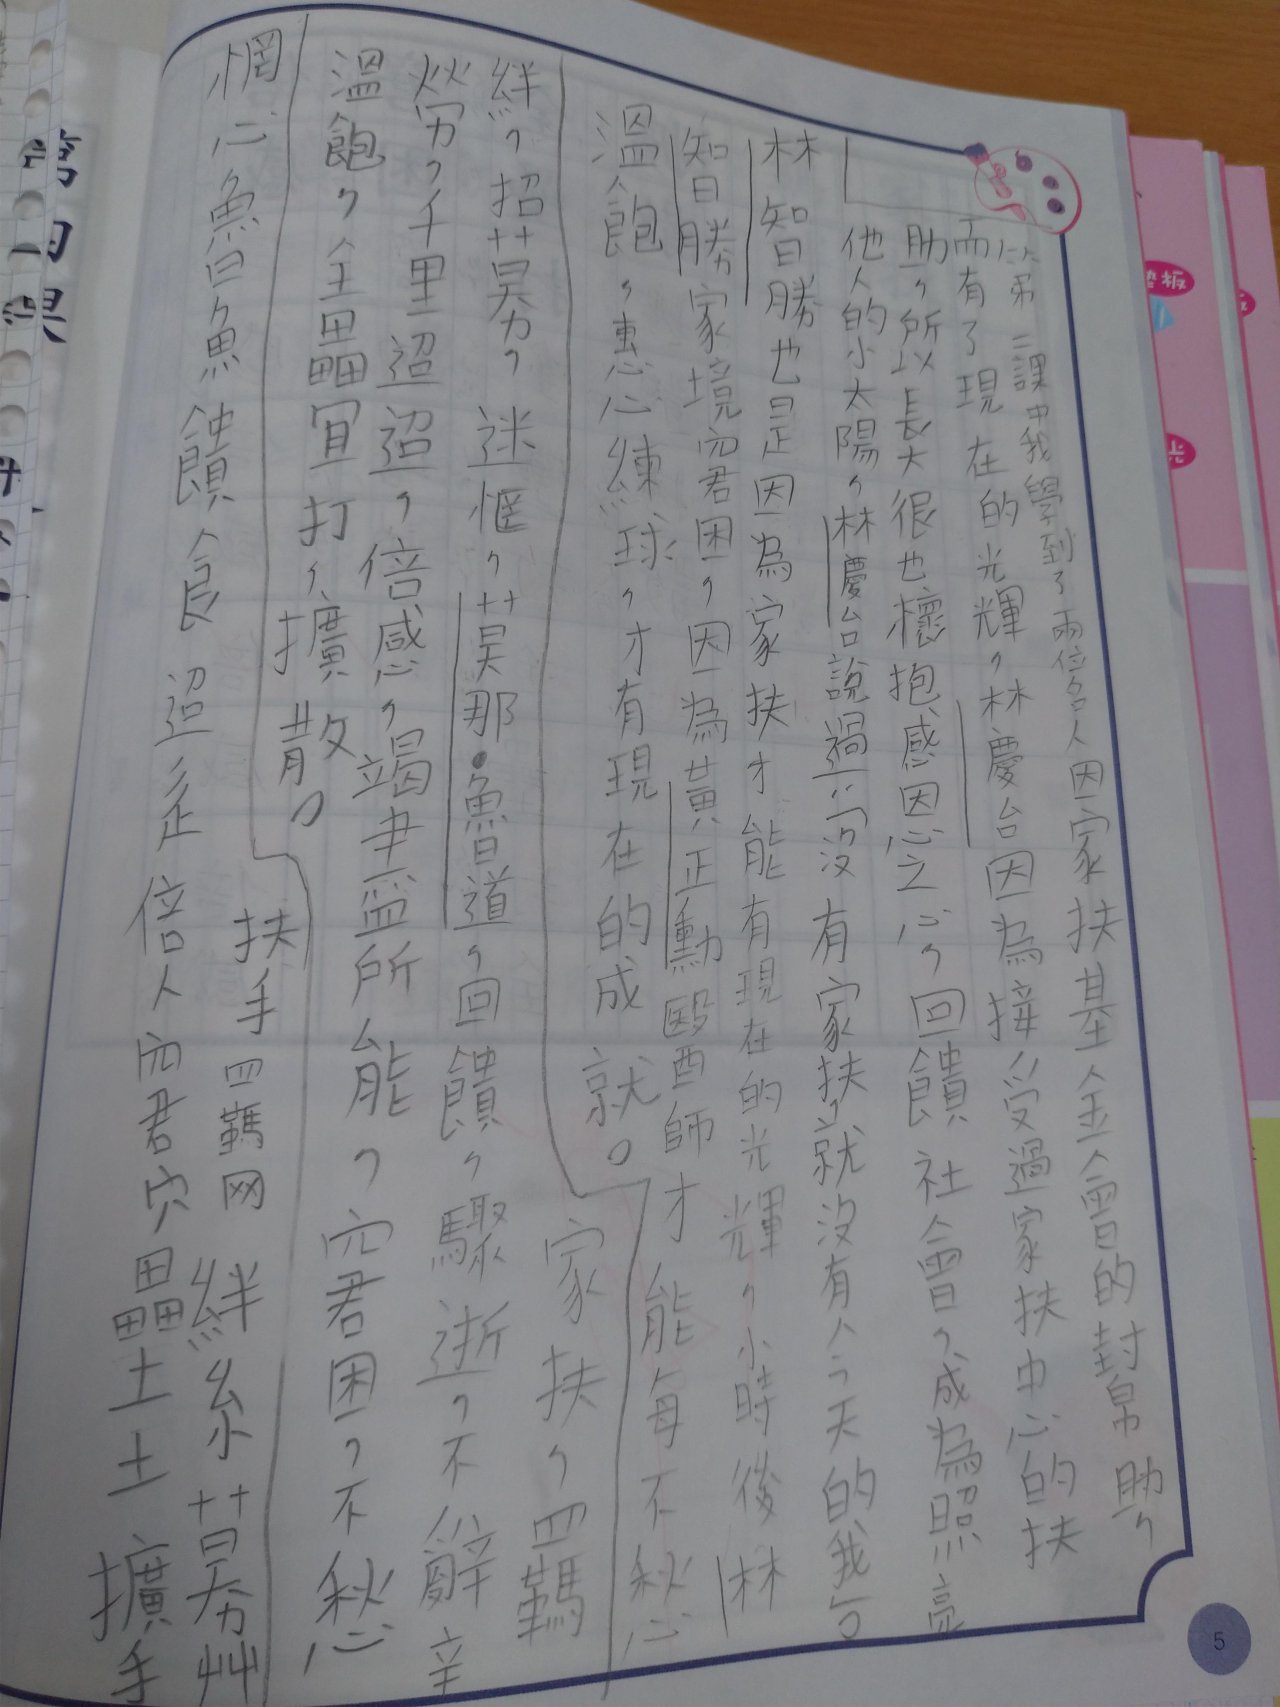 從第二課中我學到了兩位名人因家扶基金會的封帛助,
而有了現在的光輝,林慶台因為接受過家扶中心的扶
助,所以長大很也懷抱感因心之心,回饋社會,成為照亮
他人的小太陽,林慶台說過「沒有家扶就沒有今天的我」。
林智勝也是因為家扶才能有現在的光輝,小時後林
智勝家境窘困,因為黃正勳醫師才能每不愁
溫飽,專心練球,才有現在的成就。
家扶,羈
絆,招募,迷惘,莫那·魯道,回饋,驟逝,不辭辛
勞,千里迢迢,倍感,竭盡所能,窘困,不愁
溫飽,全壘打,擴散。
扶手羈网絆糸募艸
惘心魯魚饋食迢辵倍人窘穴壘土擴手
5